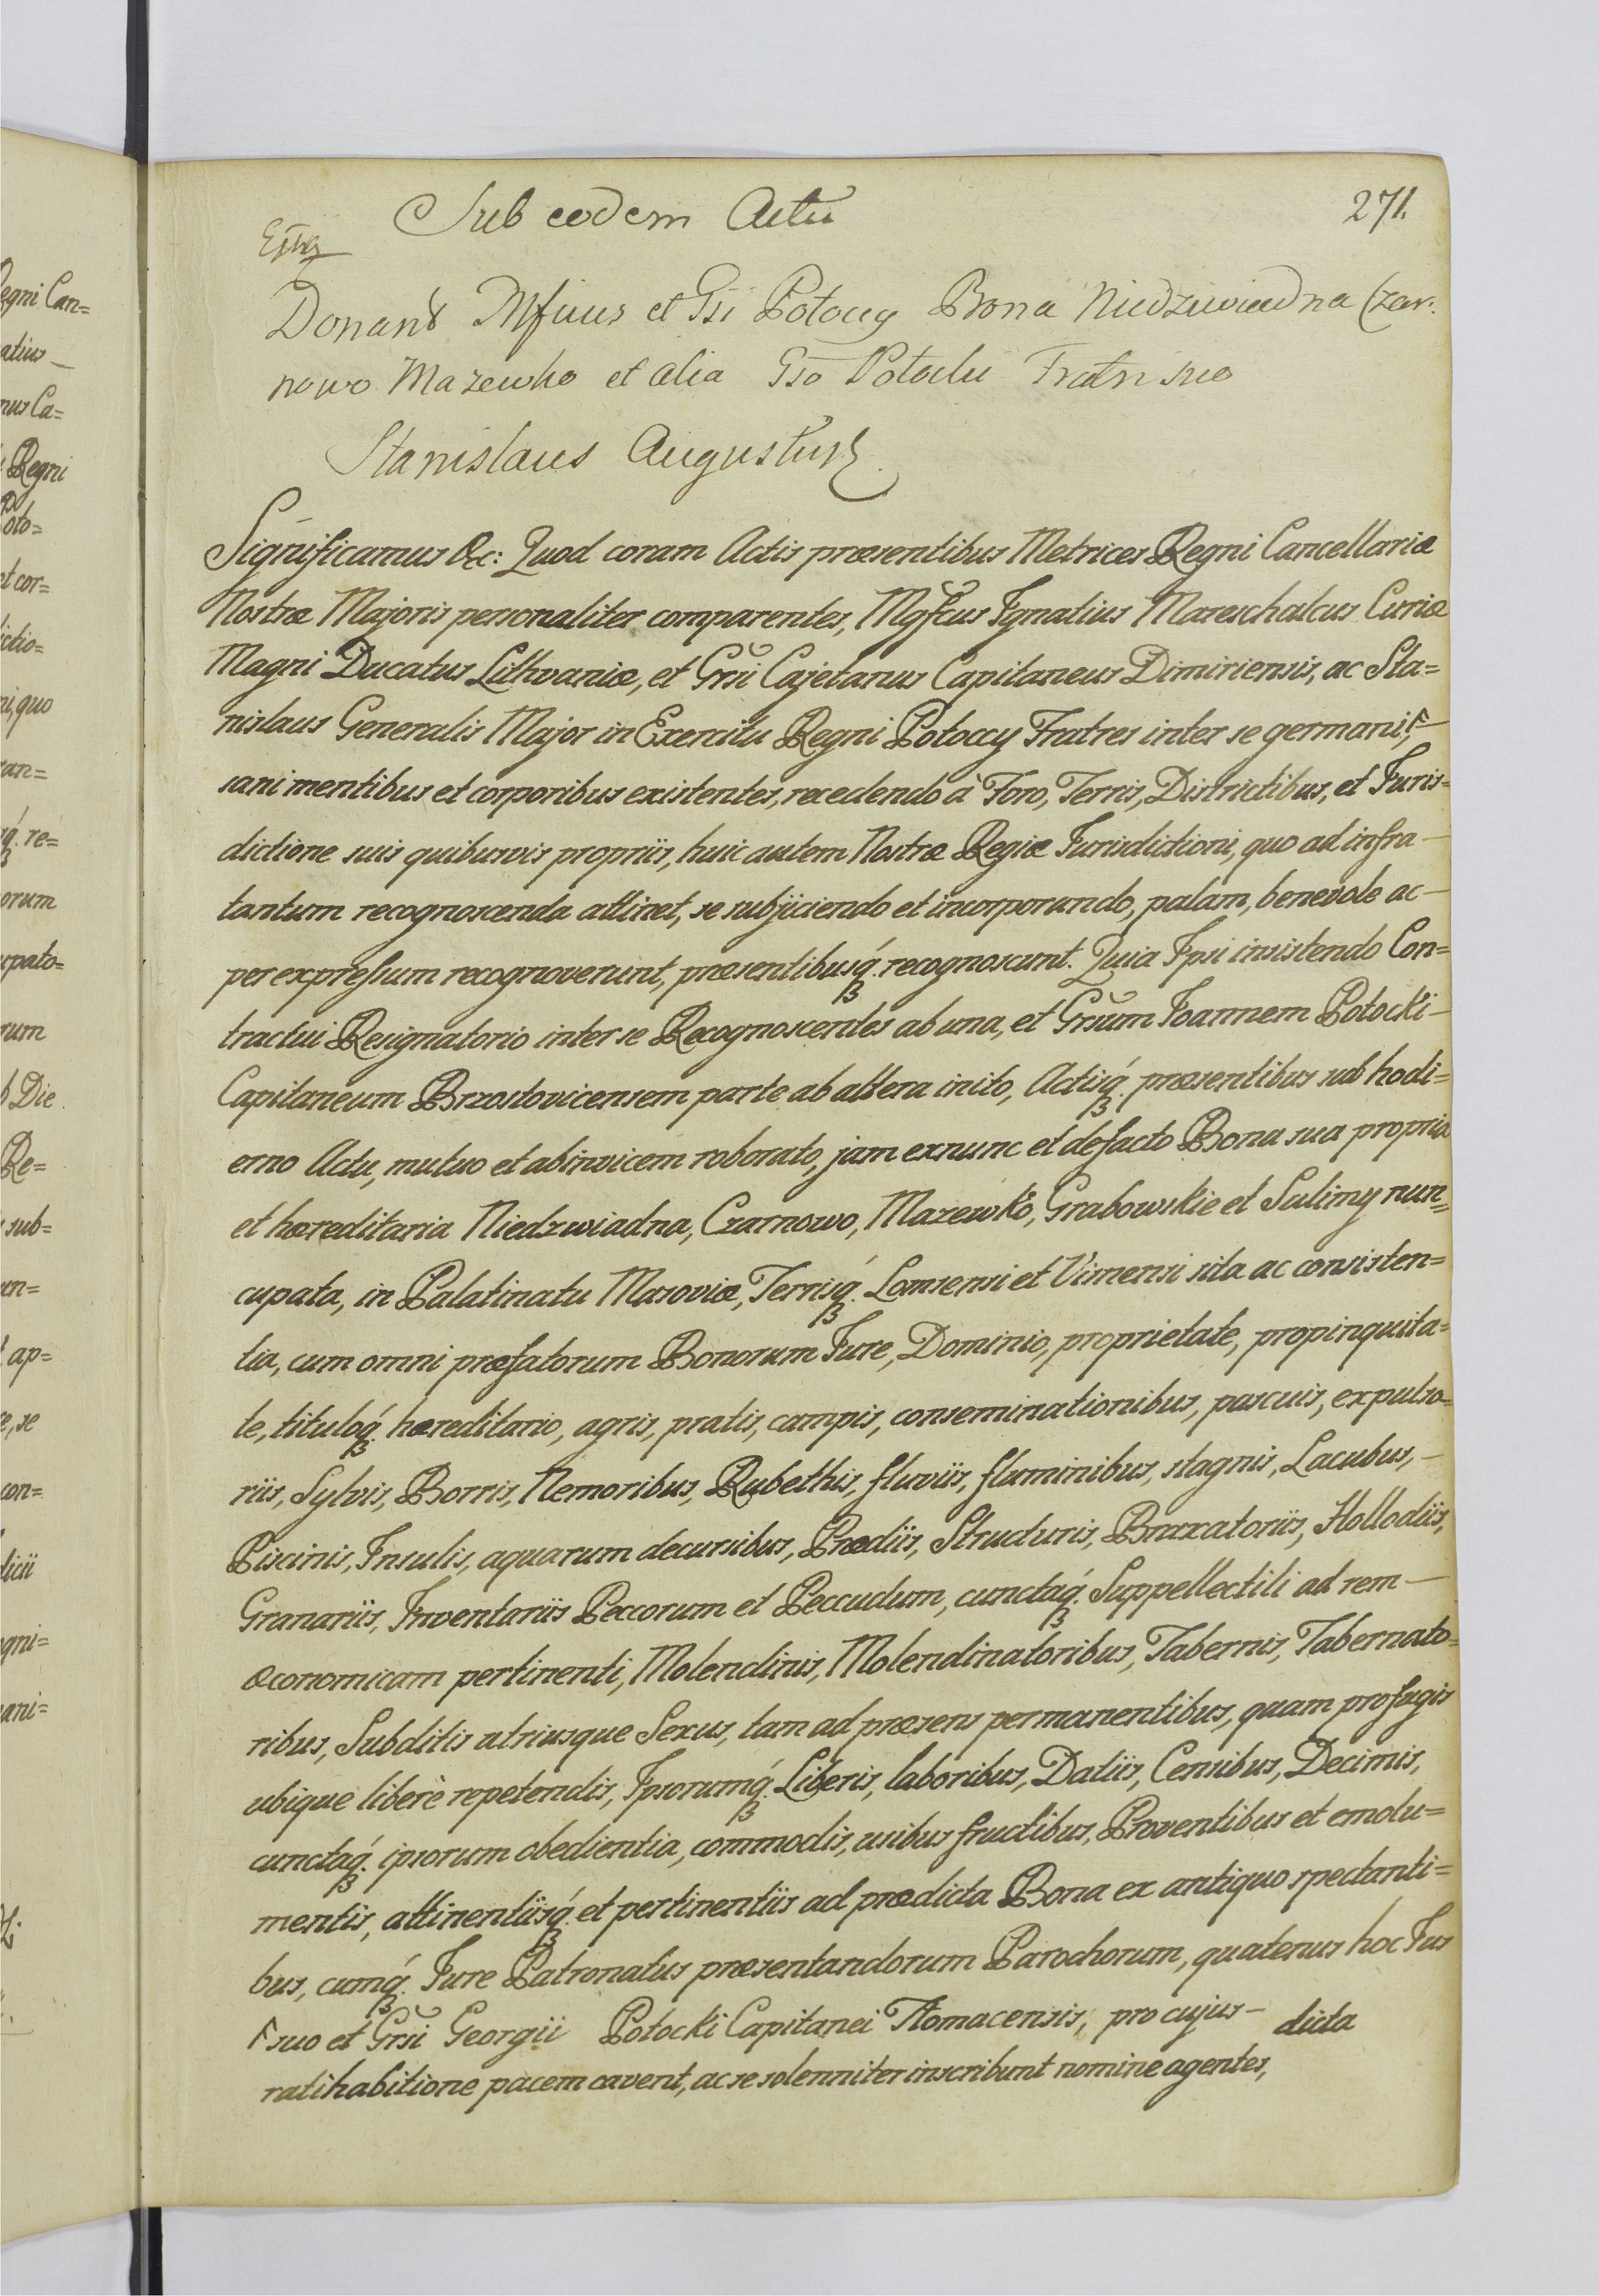 271.
Sub eodem Actu
Donant Mfcus et Gsi Potoccy Bona Niedzwiadna Czar:
nowo Mazewko et alia Gso Potocki Fratri suo
Stanislaus Augustus
Significamus &c: Quod coram Actis præsentibus Metrices Regni Cancellariæ
Nostræ Majoris personaliter comparentes, Mgfcus Ignatius Mareschalcus Curiæ
Magni Ducatus Lithvaniæ, et Grsi Cajetanus Capitaneus Dimiriensis, ac Sta=
nislaus Generalis Major in Exercitu Regni Potoccy Fratres inter se germani,
sani mentibus et corporibus existentes, recedendo à Foro, Terris, Districtibus, et Juris=
dictione suis quibusvis propriis, huic autem Nostræ Regiæ Jurisdictioni, quo ad infra-
tantum recognoscenda attinet, se subjiciendo et incorporando, palam, benevole ac-
per expressum recognoverunt, præsentibusq́. recognoscunt. Quia Ipsi insistendo Con=
tractui Resignatorio inter se Recognoscentes ab una, et Grsum Joannem Potocki-
Capitaneum Brzostovicensem parte ab altera inito, Actisq́. præsentibus sub hodi=
erno Actu, mutuo et abinvicem roborato, jam exnunc et defacto Bona sua propria
et hæreditaria Niedzwiadna, Czarnowo, Mazewko, Grabowskie et Sulimy nun=
cupata, in Palatinatu Masoviæ, Terrisq́. Lomsensi et Visnensi sita ac consisten=
tia, cum omni præfatorum Bonorum Jure, Dominio, proprietate, propinquita=
te, tituloq́. hæreditario, agris, pratis, campis, conseminationibus, pascuis, expulso=
riis, Sylvis, Borris, Nemoribus, Rubethis, fluviis, fluminibus, stagnis, Lacubus,-
Piscinis, Insulis, aquarum decursibus, Prædiis, Structuris, Braxatoriis, Hollodiis,
Granariis, Inventariis Peccorum et Peccudum, cunctaq́. Suppellectili ad rem-
œconomicam pertinenti, Molendinis, Molendinatoribus, Tabernis, Tabernato=
ribus, Subditis utriusque Sexus, tam ad præsens permanentibus, quam profugis
ubique liberè repetendis, Ipsorumq́. Liberis, laboribus, Datiis, Censibus, Decimis,
cunctaq́. ipsorum obedientia, commodis, usibus fructibus, Proventibus et emolu=
mentis, attinentiisq́. et pertinentiis ad prædicta Bona ex antiquo spectanti=
bus, cumq́. Jure Patronatus præsentandorum Parochorum, quatenus hoc Jus
suo et Grsi Georgii Potocki Capitanei Tłomacensis, pro cujus- dicta
ratihabitione pacem cavent, ac se solenniter inscribunt nomine agentes,